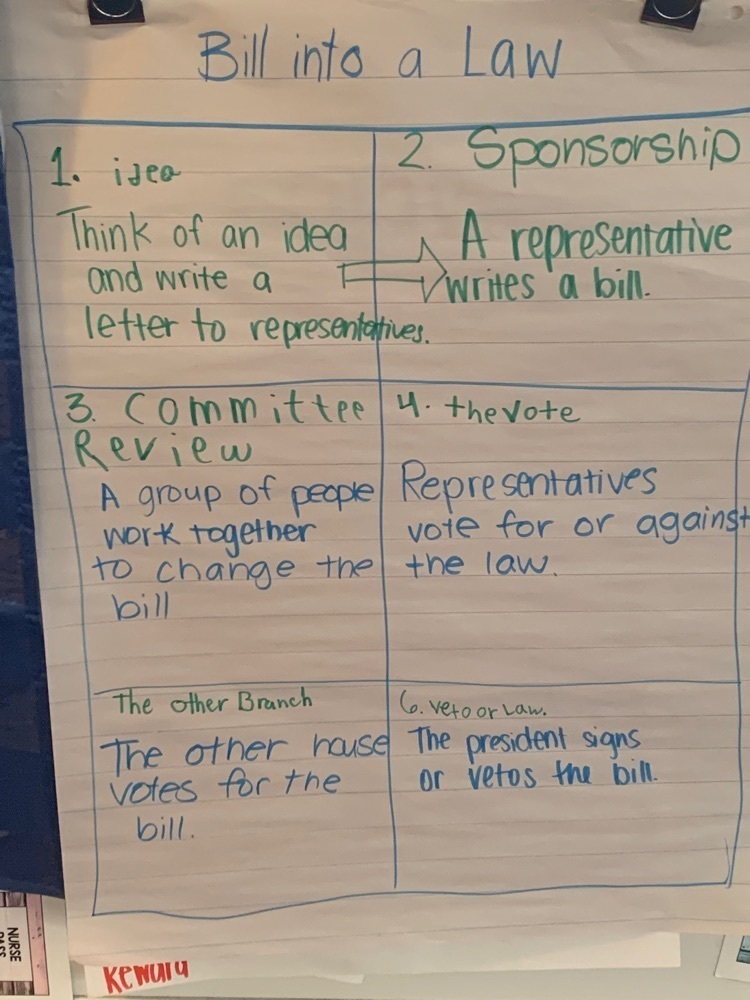 Bill into a Law
1. idea
Think of an idea
and write a
letter to representatives.
2. Sponsorship
A representative
writes a bill.
3. Committee
Review
A group of people
work together
to change the
bill
4. the Vote
Representatives
vote for or against
the law.
The other Branch
The other house
votes for the
bill.
6. Veto or Law.
The president signs
or vetos the bill.
NURSE
PASS